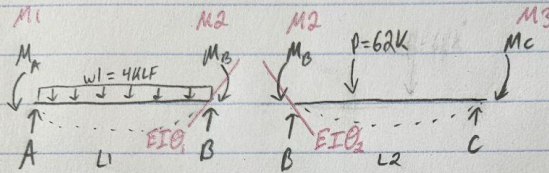 M1 M2 M2 M3
MA w1 = 4KLF MB MB P=62K MC
EIθ1 EIθ2
A L1 B B L2 C